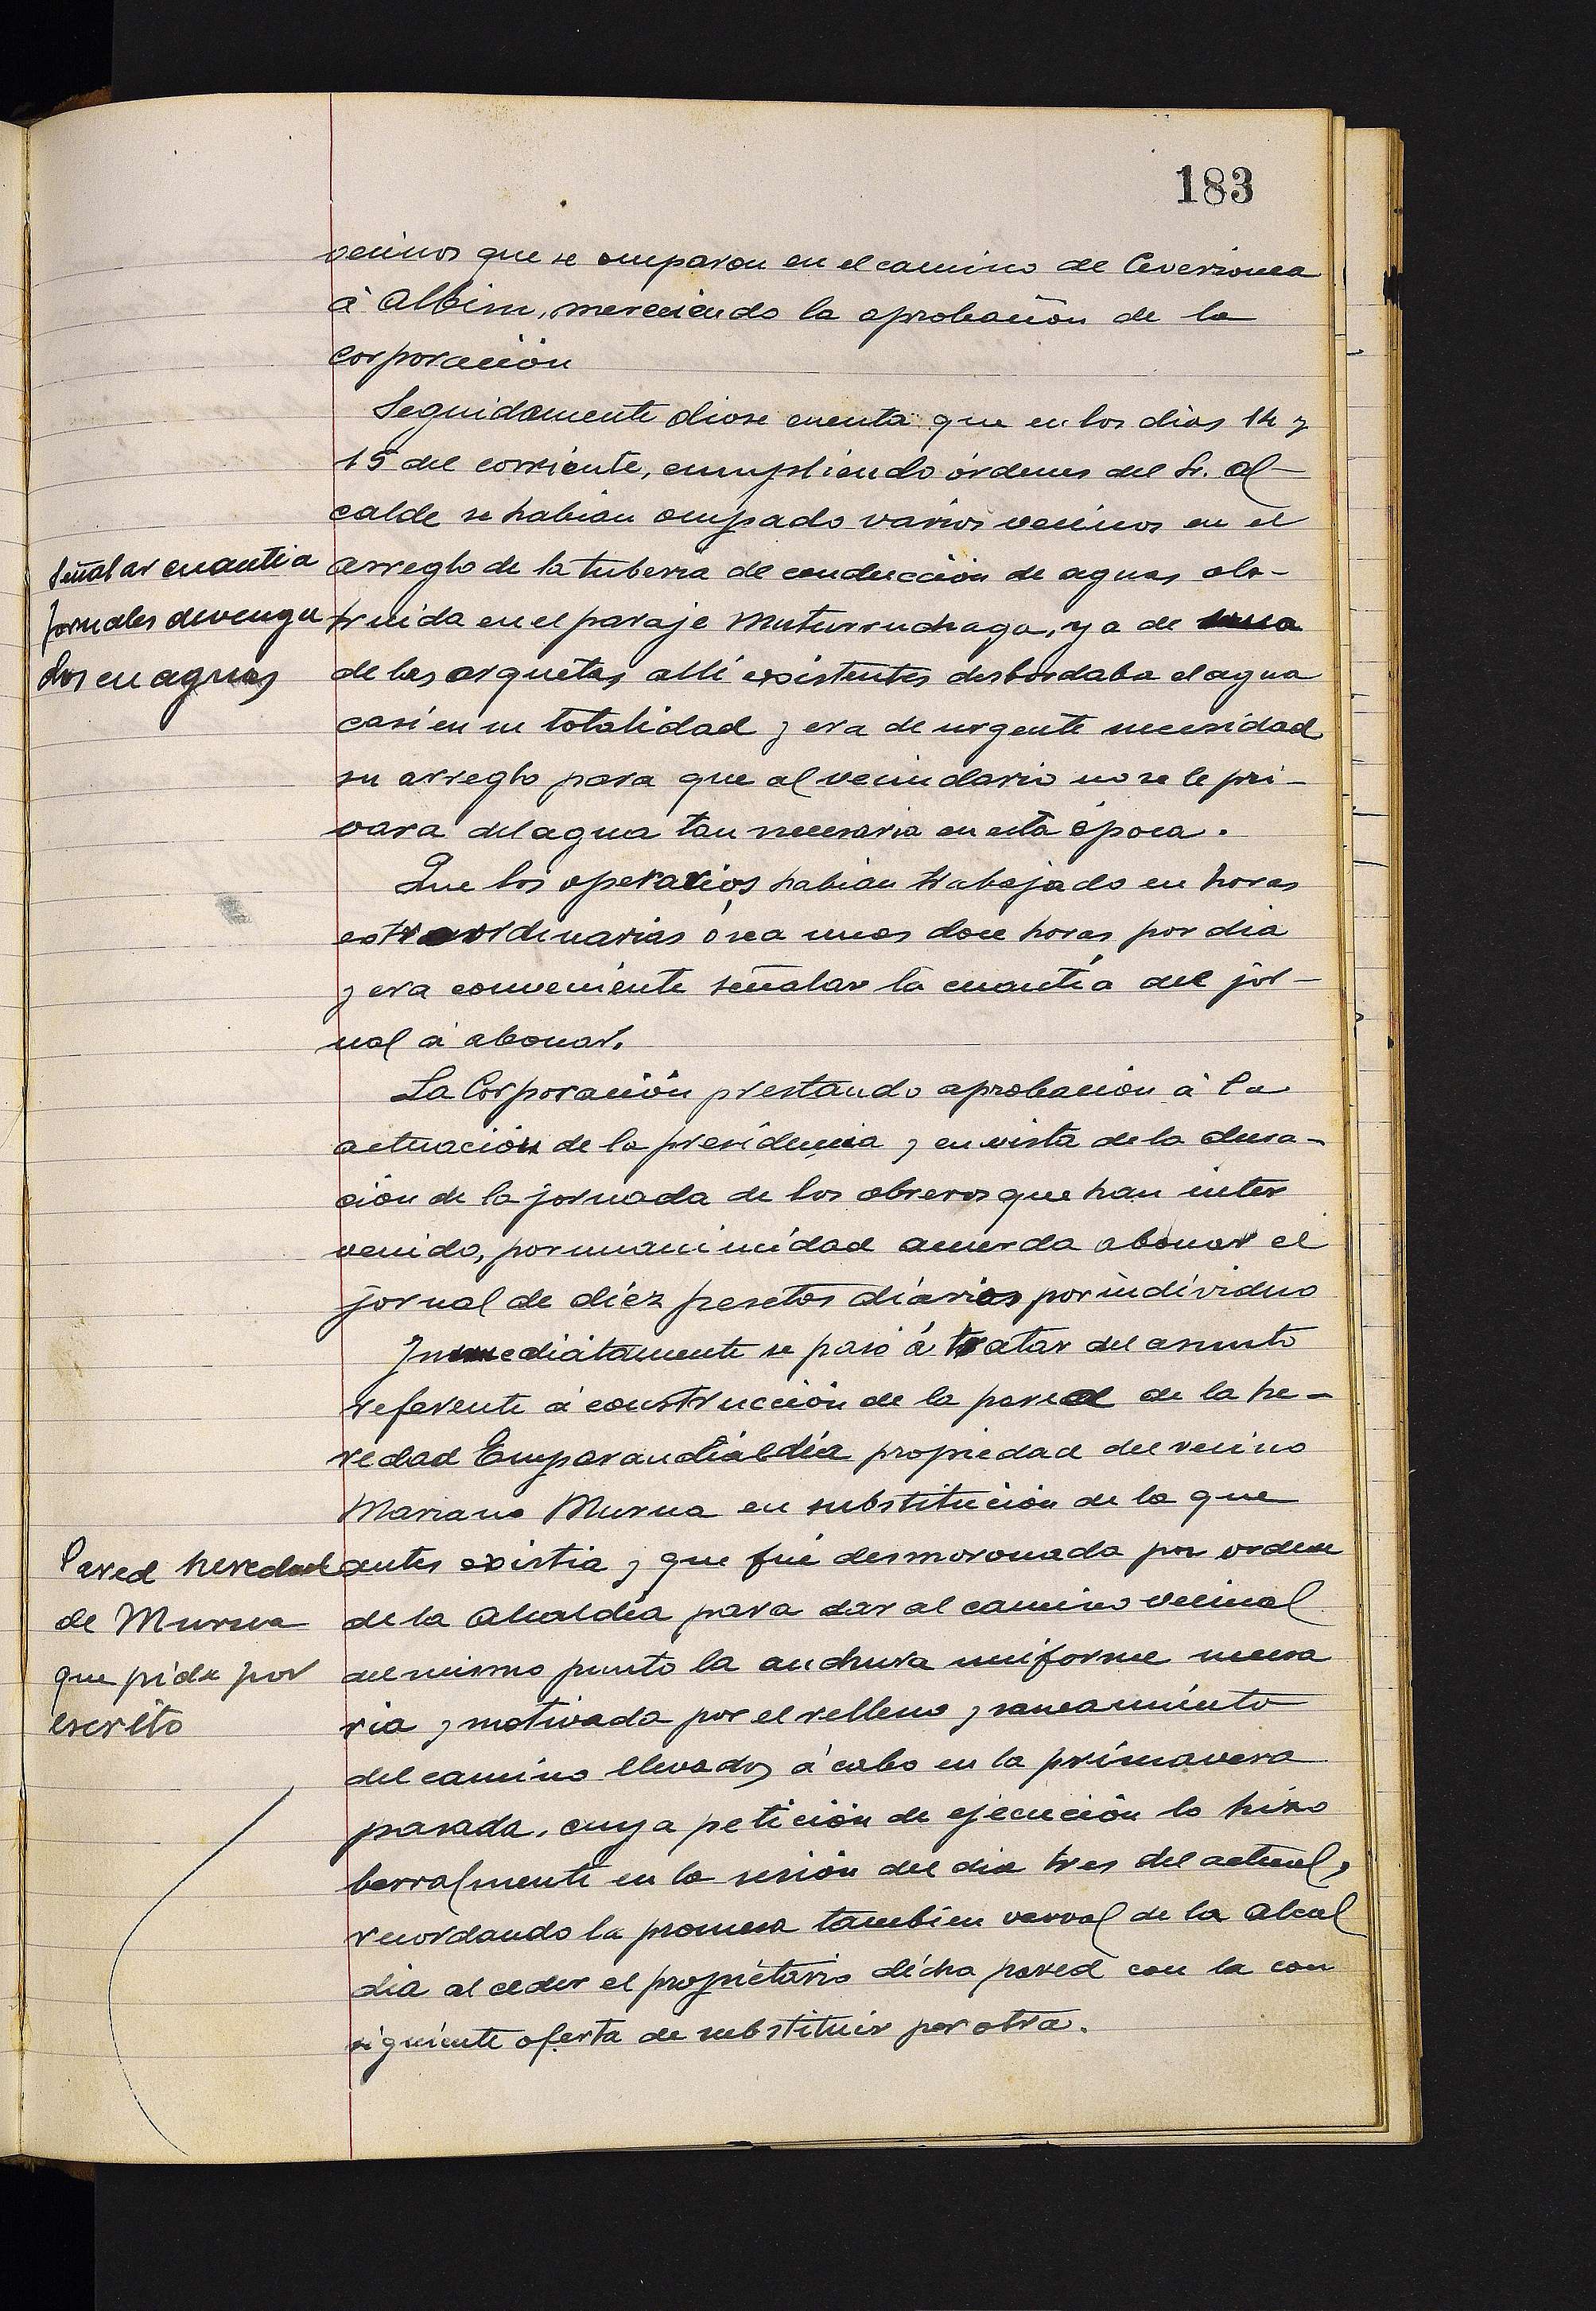 183
vecinos que se ocuparon en el camino de
á Albiru, mereciendo la aprobación de la
corporación
Seguidamente diose cuenta que en los dias 14 y
15 del corriente, cumpliendo órdenes del Sr. Al-
calde se habian ocupado varios vecinos en el
Señalar cuantia
jornales devenga
dos en aguas
arreglo de la tuberia de conducción de aguas obs-
truida en el paraje Muturruchaga, ya de una
de las arquetas alli existentes desbordaba el agua
casi en su totalidad y era de urgente necesidad
su arreglo para que al vecindario no se le pri-
vara del agua tan necesaria en esta época.
Que los operarios habian trabajado en horas
extraordinarias ó sea unas doce horas por dia
y era conveniente señalar la cuantía del jor-
nal á abonar.
La Corporación prestando aprobación á la
actuación de la presidencia y en vista de la dura-
ción de la jornada de los obreros que han inter
venido, por unanimidad acuerda abonar el
jornal de diez pesetas diarias por individuo
Inmediatamente se pasó á tratar del asunto
referente á construcción de la pared de la he-
redad Emparandialdia propiedad del vecino
Mariano Murua en substitución de la que
Pared heredad
de Murua
que pida por
escrito
antes existia y que fué desmoronada por orden
de la Alcaldía para dar al camino vecinal
del mismo punto la anchura uniforme necesa
ria y motivada por el relleno y saneamiento
del camino llevados á cabo en la primavera
pasada, cuya petición de ejecución lo hizo
berralmente en la sesión del dia tres del actual,
recordando la promesa tambien verval de la Alcal
dia al ceder el propietario dicha pared con la con
siguiente oferta de substituir por otra.